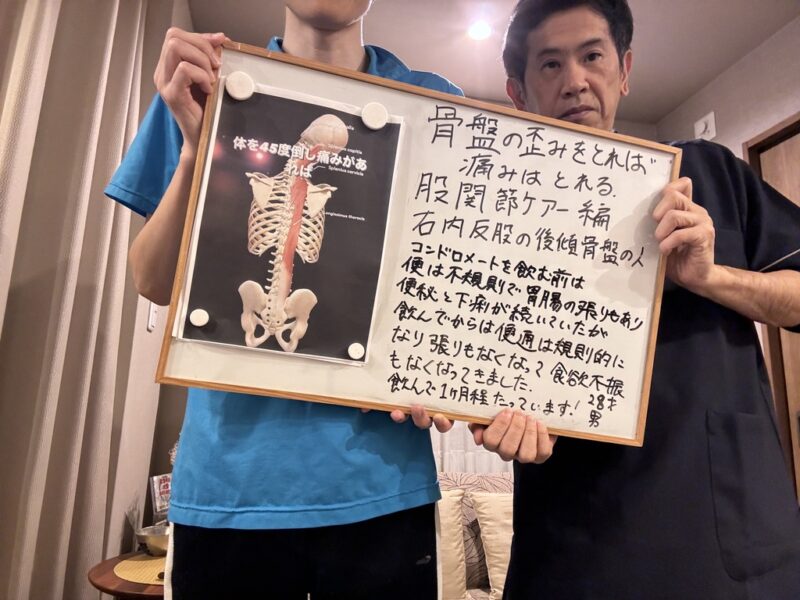 体を45度倒し痛みがあ
れば
Splenius capitis
Splenius cervicis
Longissimus thoracis
骨盤の歪みをとれば
痛みはとれる.
股関節ケアー編
右内反股の後傾骨盤の人
コンドロメートを飲む前は
便は不規則で胃腸の張りもあり
便秘と下痢が続いていたが
飲んでからは便通は規則的に
なり張りもなくなって食欲不振
もなくなってきました.
飲んで1ヶ月経たっています!
28才
男